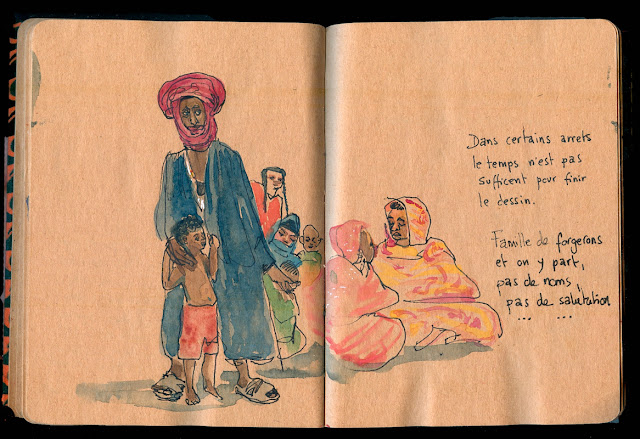 Dans certains arrets
le temps n'est pas
sufficent pour finir
le dessin.
Famille de forgerons
et on y part,
pas de noms,
pas de salutation
... ...